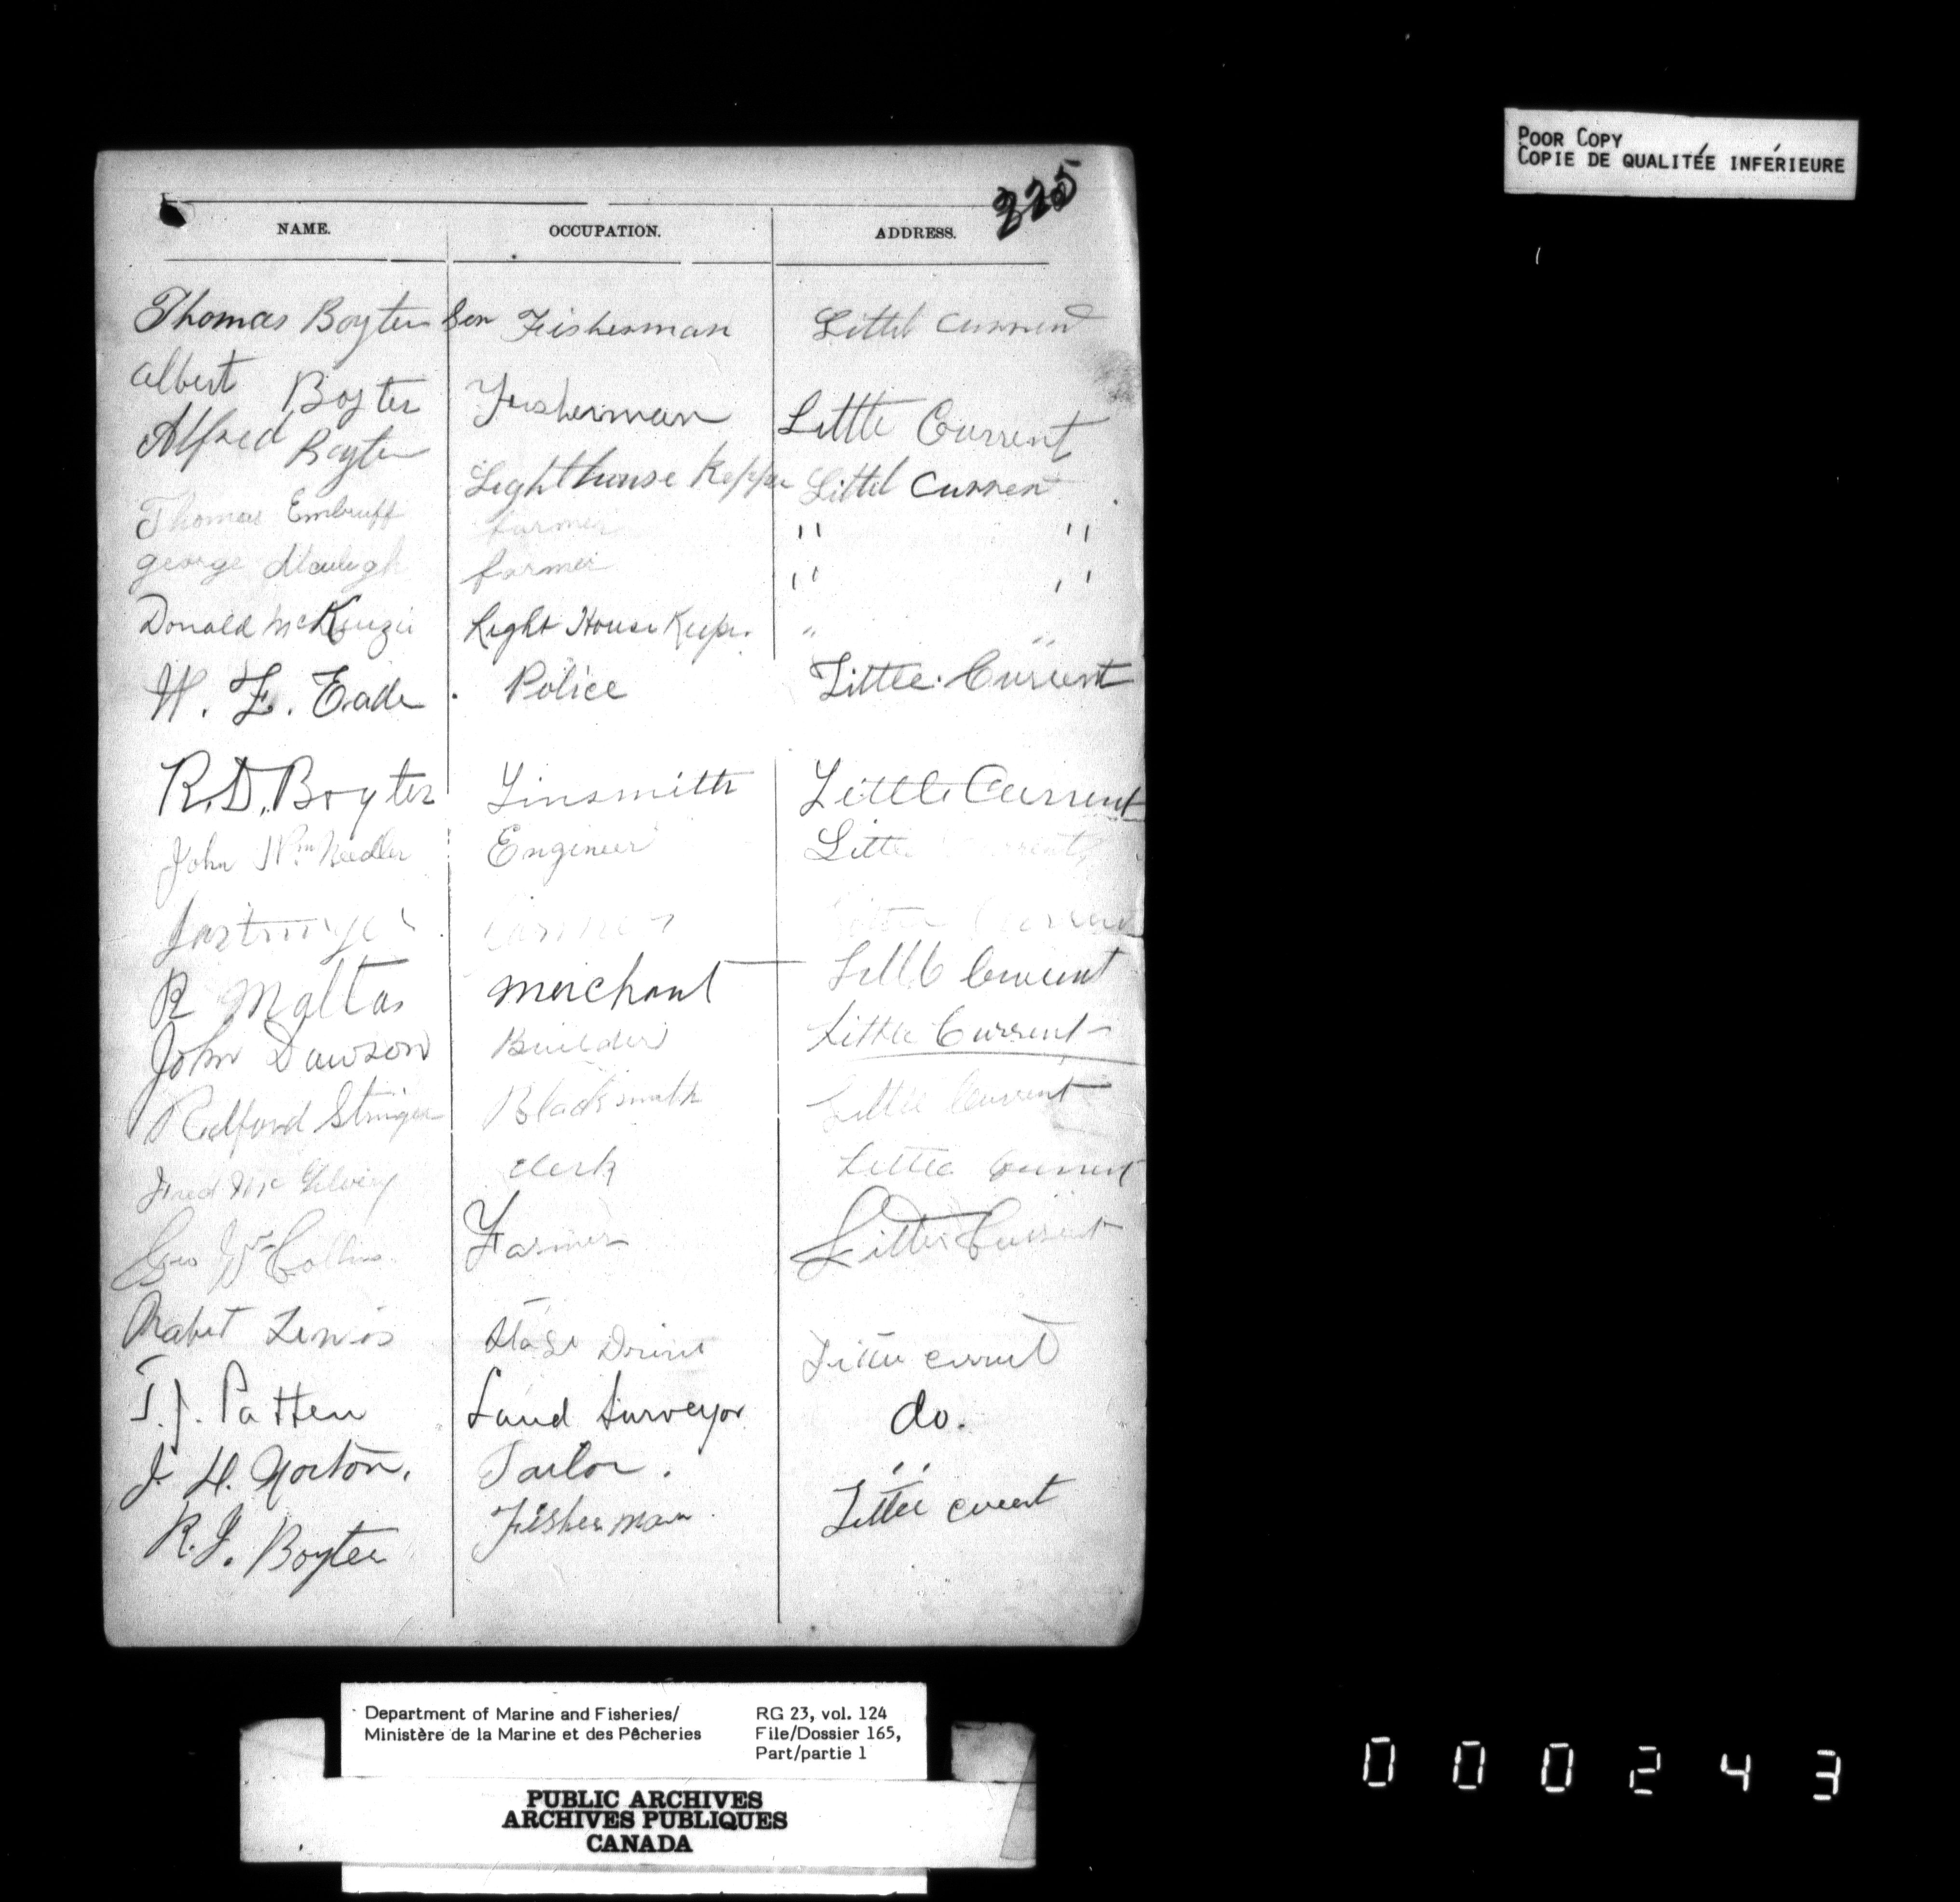 POOR COPY
COPIE DE QUALITÉE INFÉRIEURE
225
NAME. OCCUPATION. ADDRESS.
Thomas Boyter Sen Fisherman Littel Current
Albert Boyter Fisherman Little Current
Alfred Boyter Lighthouse Kepper Littel Current
Thomas Embruff farmer " "
george farmer " "
Donald McKenzie Light House Keeper " "
W. E. Eade. Police Little Current
R. D. Boyter Tinsmith Little Current
John Wm Needler Engineer Little Current
Little Current
R Maltas merchant Little Current
John Dawson Builder Little Current
Redford Stringer Blacksmith Little Current
Fred Mc Gilvery clerk Little Current
Geo Collins Farmer Little Current
Robert Lewis Stage Driver Little Current
T. J. Patten Land Surveyor do.
J. H. Norton. Tailor. "
R. J. Boyter Fisherman Little Current
Department of Marine and Fisheries/ RG 23, vol. 124
Ministère de la Marine et des Pêcheries File/Dossier 165,
Part/partie 1
PUBLIC ARCHIVES
ARCHIVES PUBLIQUES
CANADA
000243